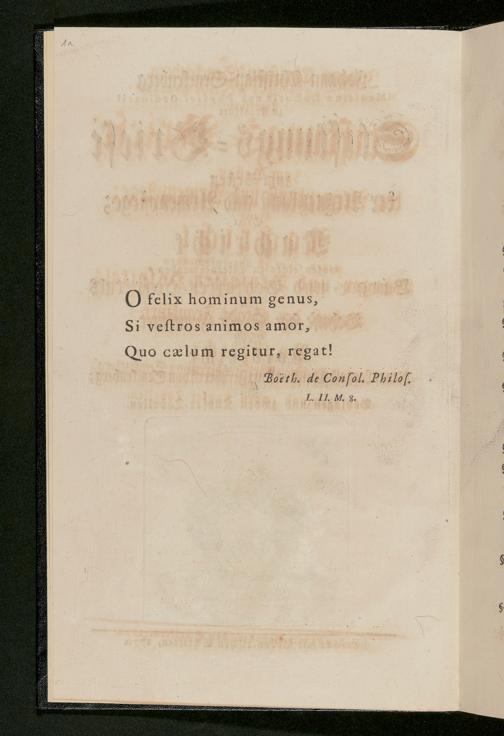 1a
O felix hominum genus,
Si veſtros animos amor,
Quo cælum regitur, regat!
Boëth. de Conſol. Philoſ.
L. II. M. 8.